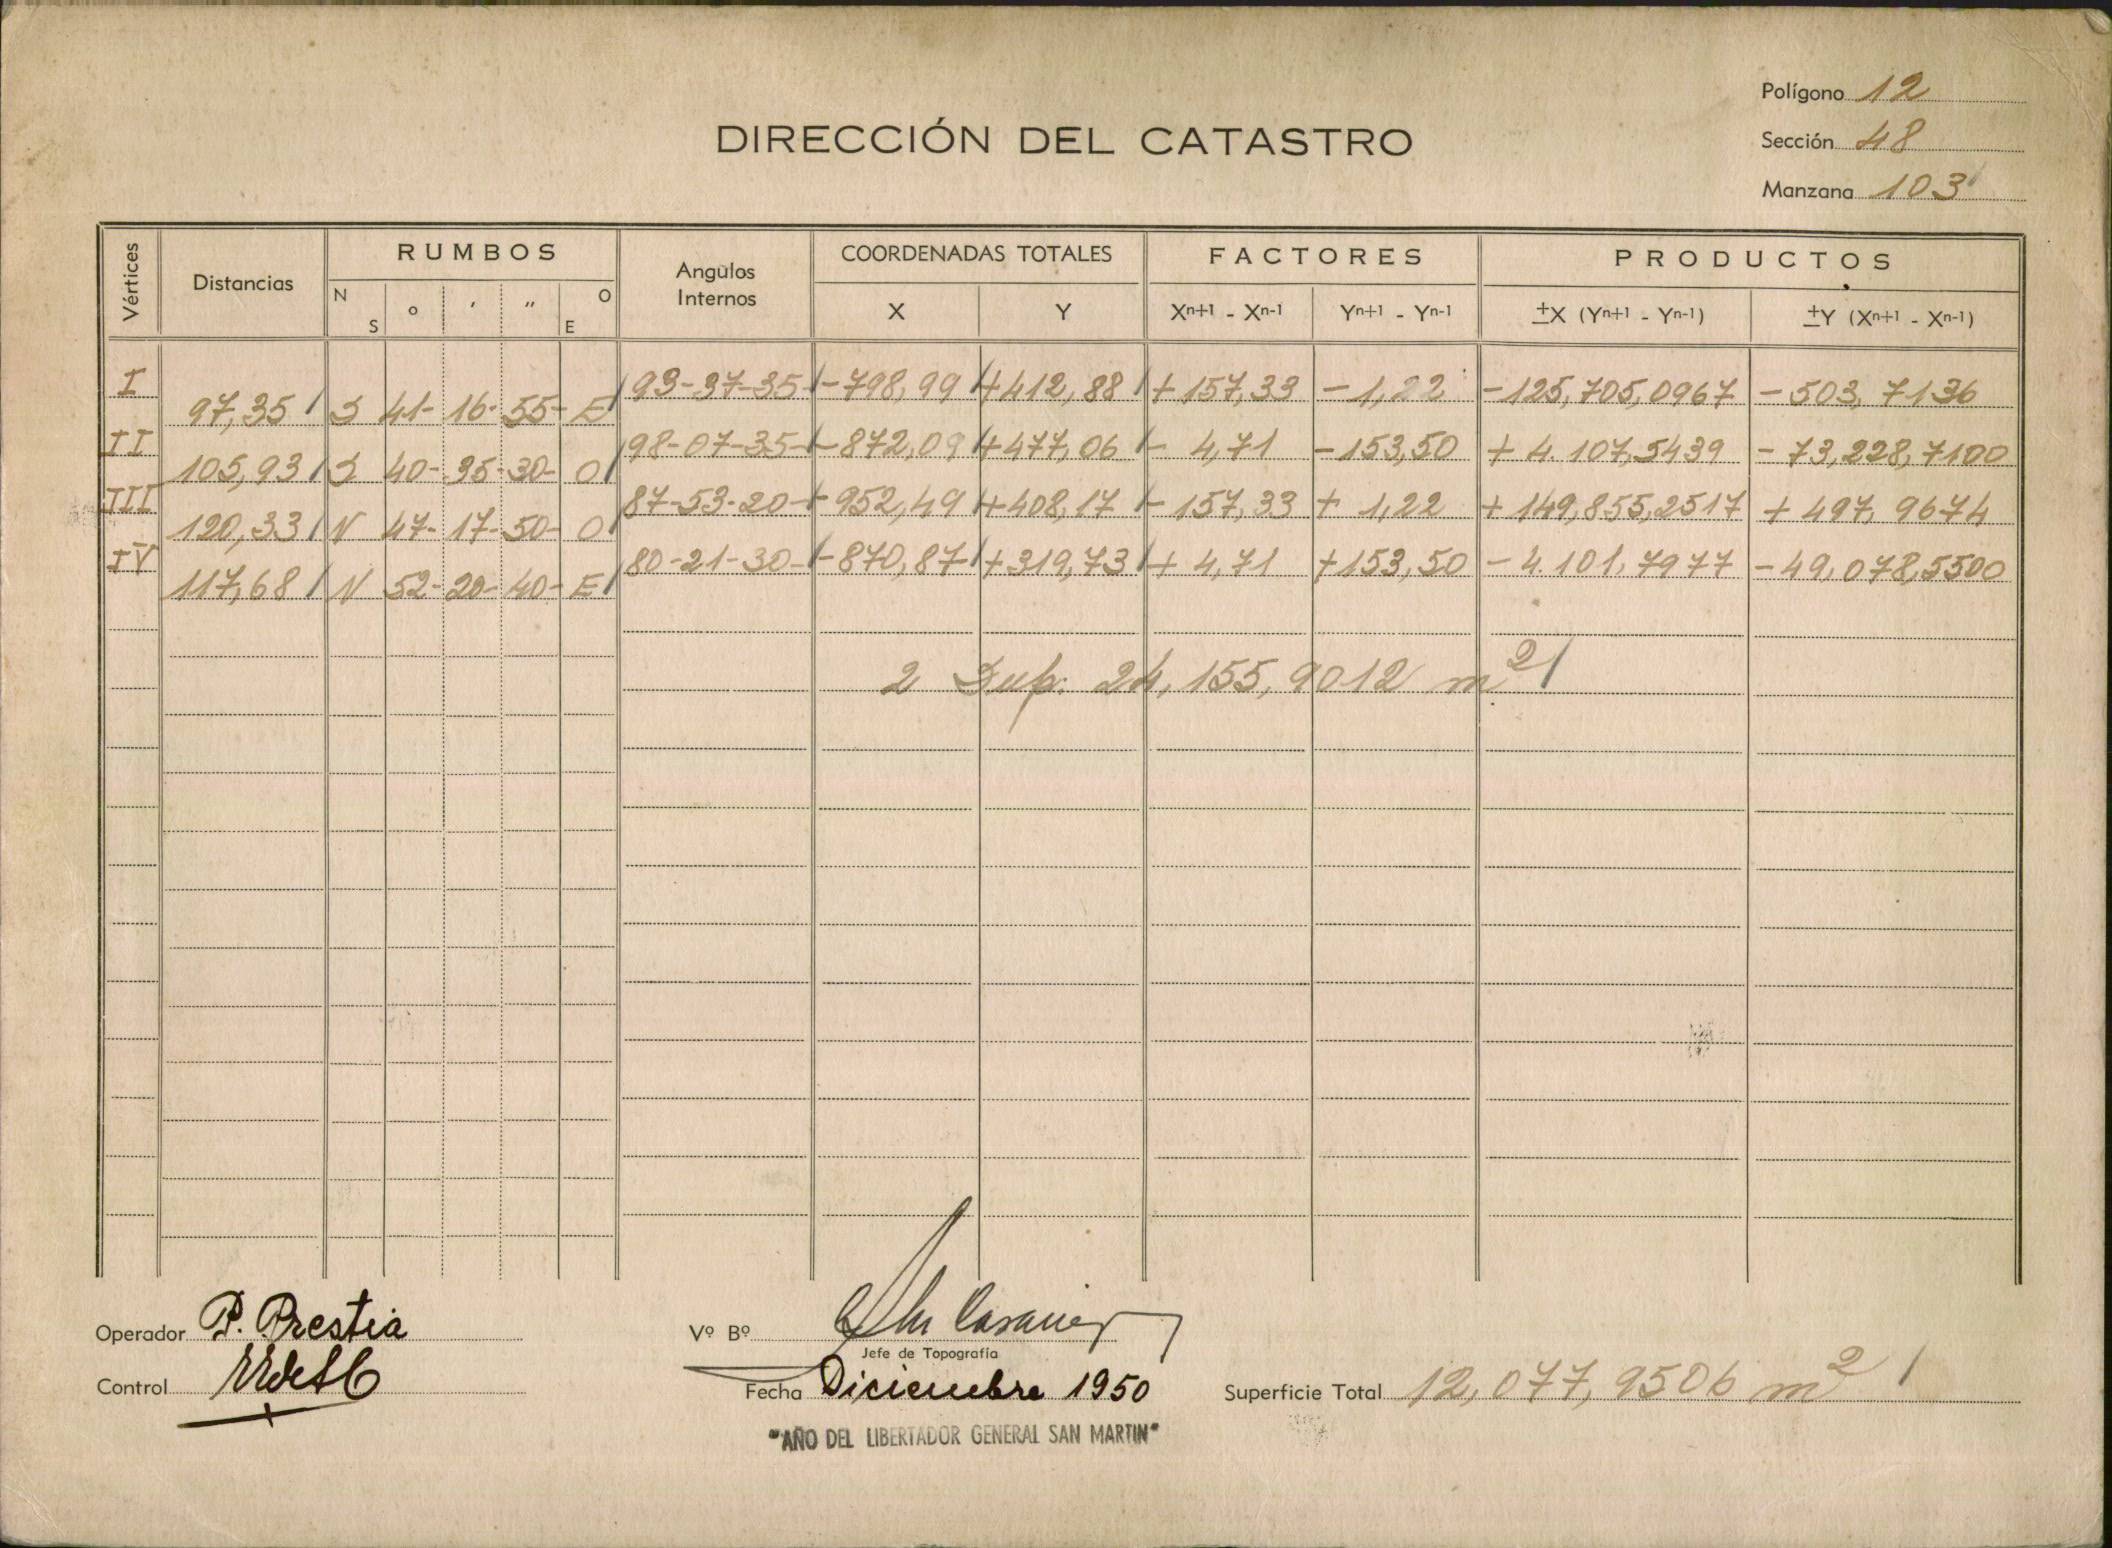 Polígono 12
DIRECCIÓN DEL CATASTRO
Sección 48
Manzana 103
Vértices Distancias RUMBOS Angulos Internos COORDENADAS TOTALES FACTORES PRODUCTOS
N S o ' " O E X Y Xn+1 - Xn-1 Yn+1 - Yn-1 ±X (Yn+1 - Yn-1) ±Y (Xn+1 - Xn-1)
I 93-37-35 -798,99 +412,88 +157,33 -1,22 -125,705,0967 -503,7136
97,35 S 41- 16- 55- E
II 98-07-35 -872,09 +477,06 -4,71 -153,50 +4.107,5439 -73,228,7100
105,93 S 40- 35- 30- O
III 87-53-20 -952,49 +408,17 -157,33 +1,22 +149,855,2517 +497,9674
120,33 N 47- 17- 50- O
IV 80-21-30 -870,87 +319,73 +4,71 +153,50 -4.101,7977 -49,078,5500
117,68 N 52- 20- 40- E
2 Sup. 24,155,9012 m2
Operador P. Prestia Vº Bº
Jefe de Topografía
Control Fecha Diciembre 1950 Superficie Total 12,077,9506 m2
"AÑO DEL LIBERTADOR GENERAL SAN MARTIN"